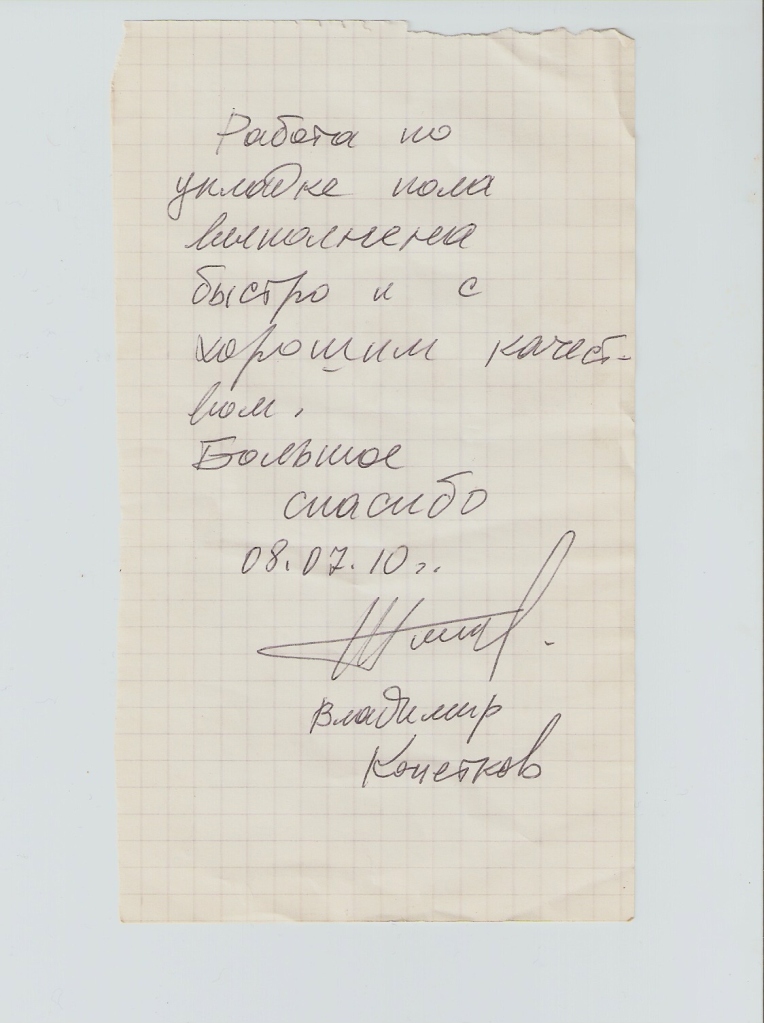 Работа по
укладке пола
выполнена
быстро и с
хорошим качест-
вом.
Большое
спасибо
08.07.10г.
Владимир